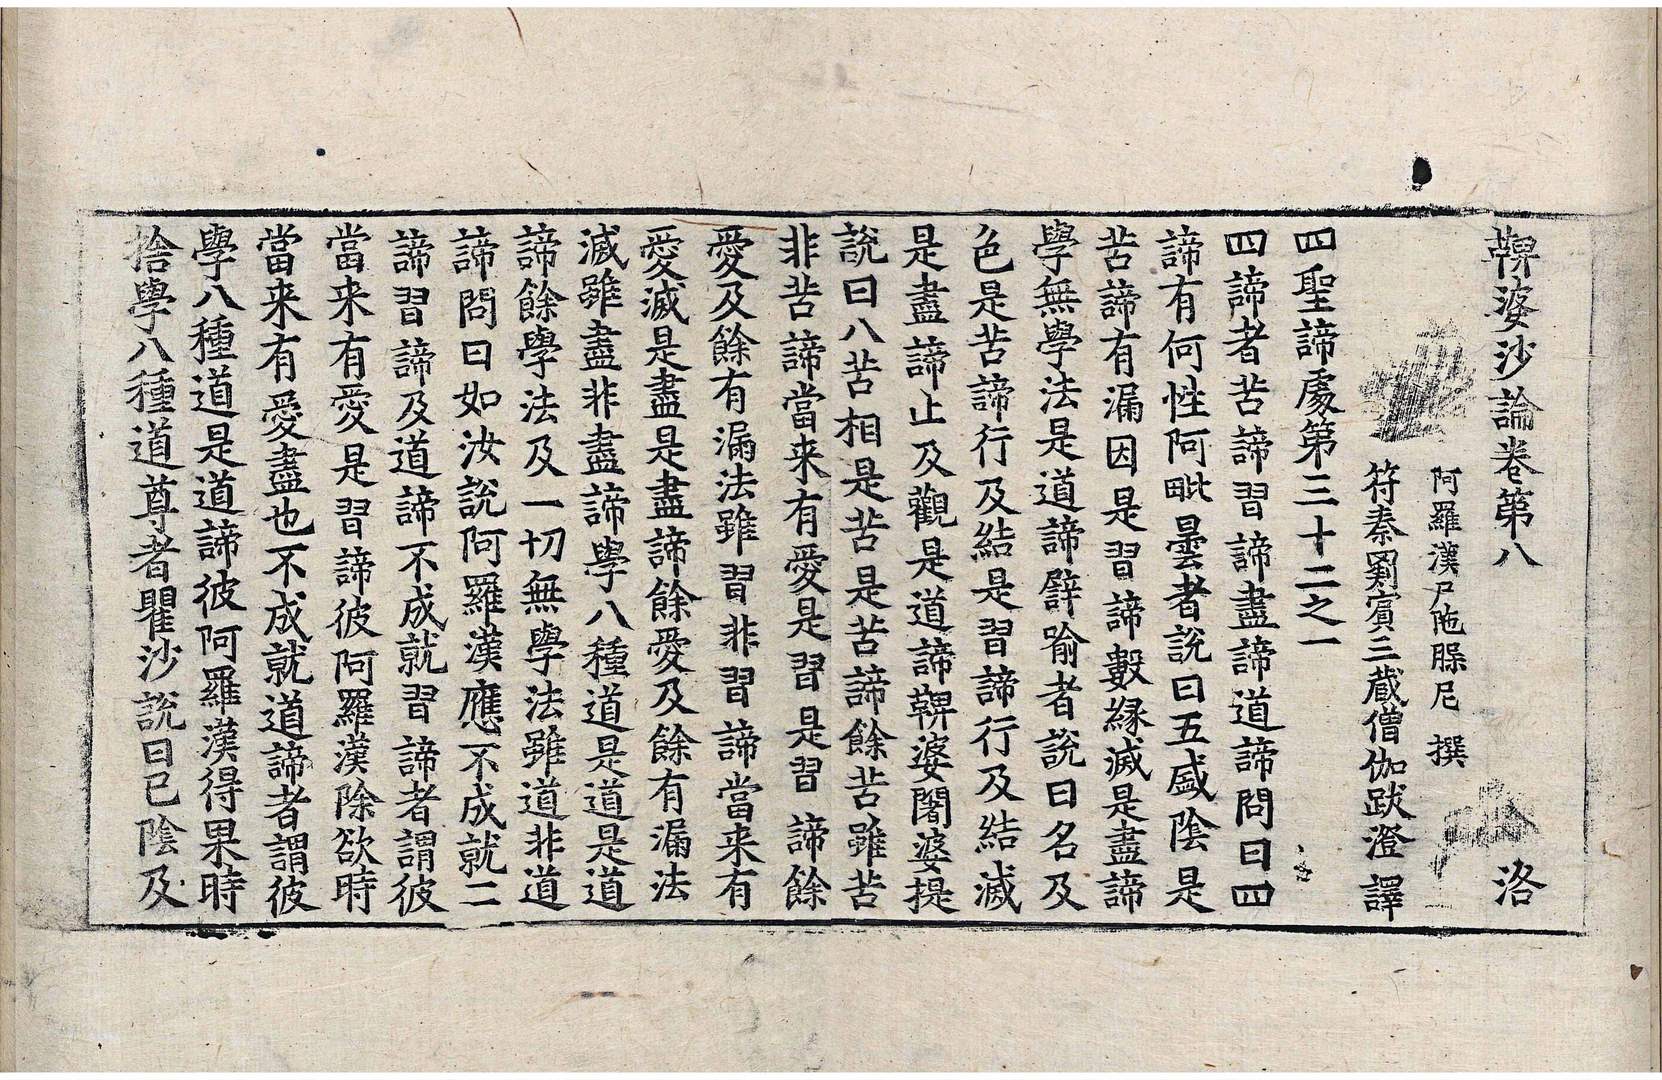 鞞婆沙論卷第八 洛
阿羅漢尸陁槃尼 撰
符秦罽賓三藏僧伽跋澄 譯
四聖諦處第三十二之一
四諦者苦諦習諦盡諦道諦問曰四
諦有何性阿毗曇者說曰五盛陰是
苦諦有漏因是習諦數緣滅是盡諦
學無學法是道諦譬喻者說曰名及
色是苦諦行及結是習諦行及結滅
是盡諦止及觀是道諦鞞婆闍婆提
說曰八苦相是苦是苦諦餘苦雖苦
非苦諦當来有愛是習是習諦餘
愛及餘有漏法雖習非習諦當来有
愛滅是盡是盡諦餘愛及餘有漏法
滅雖盡非盡諦學八種道是道是道
諦餘學法及一切無學法雖道非道
諦問曰如汝說阿羅漢應不成就二
諦習諦及道諦不成就習諦者謂彼
當来有愛是習諦彼阿羅漢除欲時
當来有愛盡也不成就道諦者謂彼
學八種道是道諦彼阿羅漢得果時
捨學八種道尊者瞿沙說曰已陰及